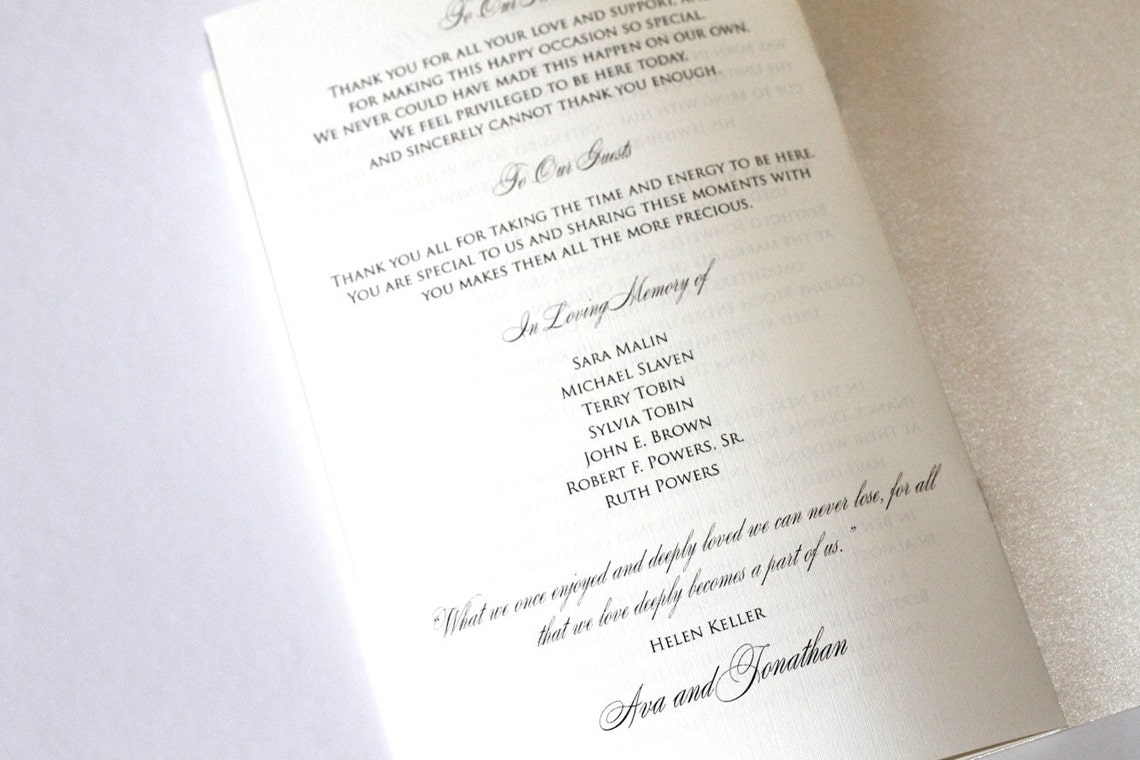 To Our
THANK YOU FOR ALL YOUR LOVE AND SUPPORT,
FOR MAKING THIS HAPPY OCCASION SO SPECIAL.
WE NEVER COULD HAVE MADE THIS HAPPEN ON OUR OWN,
WE FEEL PRIVILEGED TO BE HERE TODAY,
AND SINCERELY CANNOT THANK YOU ENOUGH.
To Our Guests
THANK YOU ALL FOR TAKING THE TIME AND ENERGY TO BE HERE.
YOU ARE SPECIAL TO US AND SHARING THESE MOMENTS WITH
YOU MAKES THEM ALL THE MORE PRECIOUS.
In Loving Memory of
SARA MALIN
MICHAEL SLAVEN
TERRY TOBIN
SYLVIA TOBIN
JOHN E. BROWN
ROBERT F. POWERS, SR.
RUTH POWERS
"What we once enjoyed and deeply loved we can never lose, for all
that we love deeply becomes a part of us."
HELEN KELLER
Ava and Jonathan